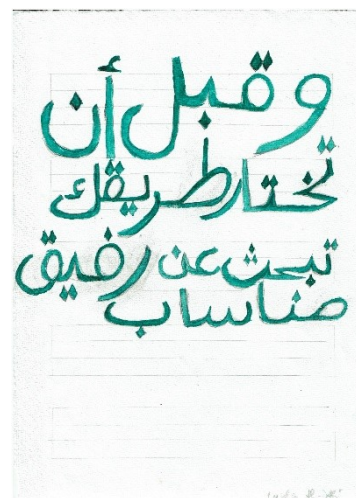 وقبل أن
تختار طريقك
تبحث عن رفيق
مناساب